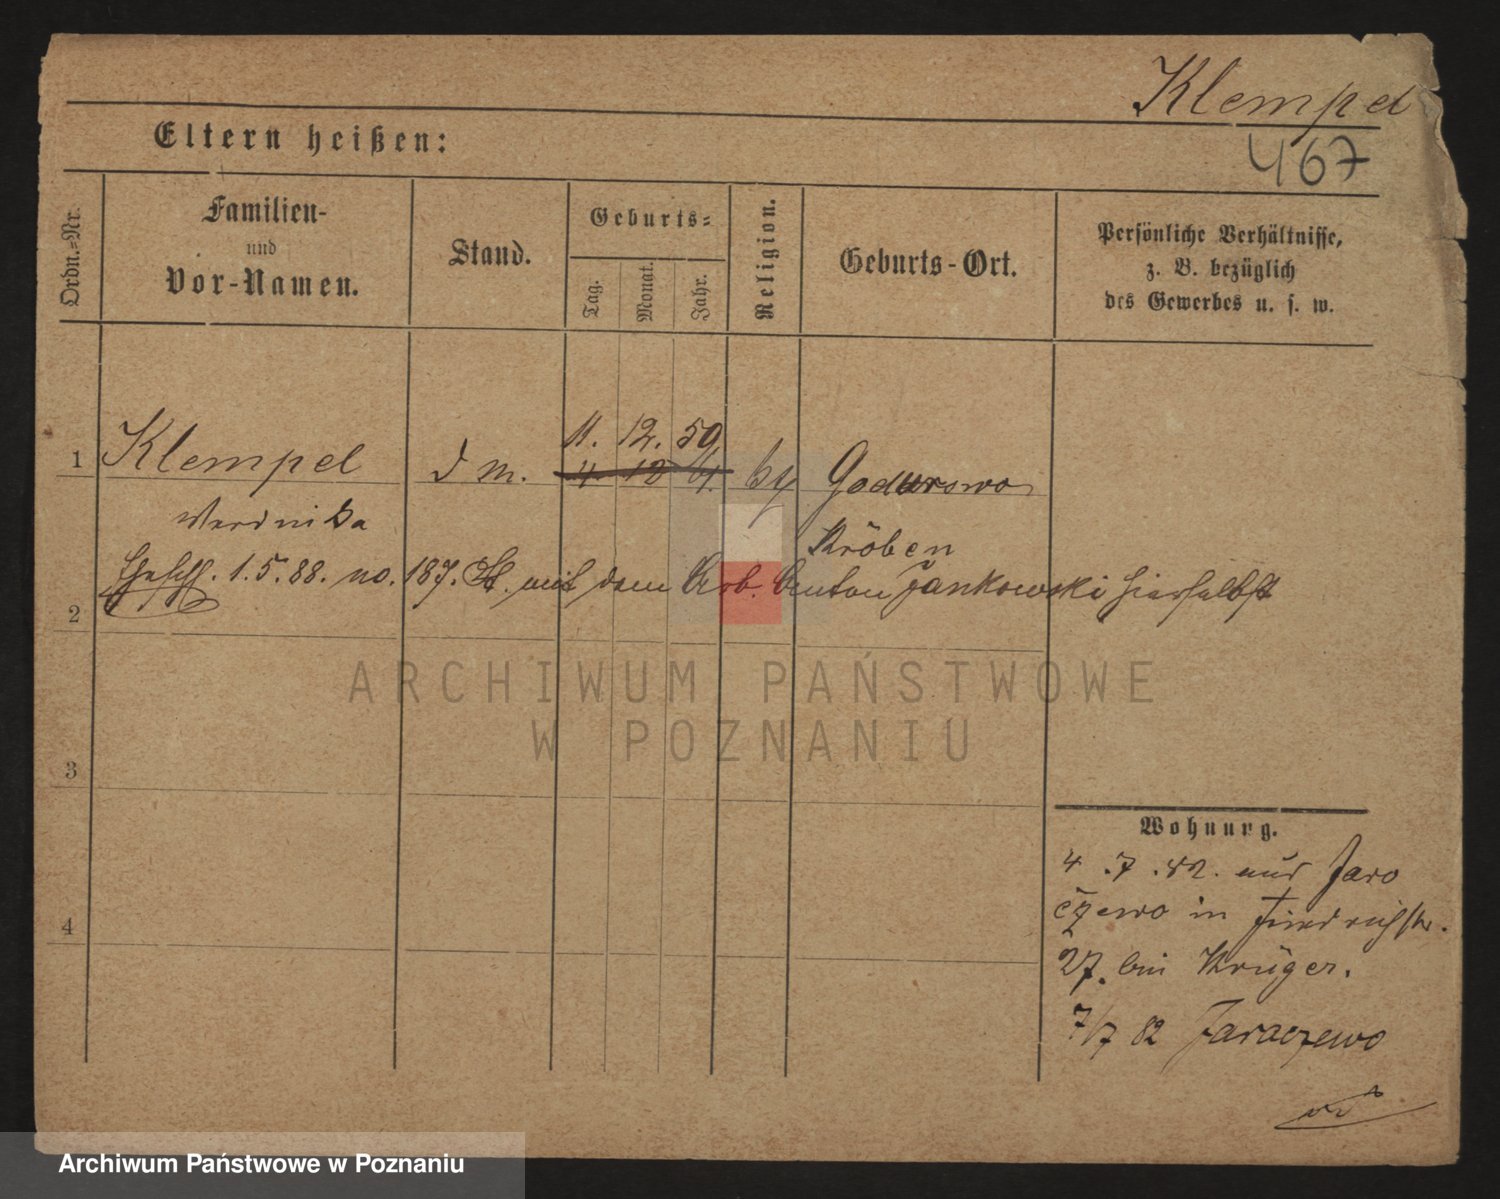 Klempel
467
Eltern heißen:
Ordn.-Nr.
Familien-
und
Vor-Namen.
Stand.
Geburts-
Tag.
Monat.
Jahr.
Religion.
Geburts-Ort.
Persönliche Verhältnisse,
z. B. bezüglich
des Gewerbes u. s. w.
11. 12. 59
1 Klempel d m. 4. 12 61. Godurowo
Weronika
Kröben
1. 5. 88. no. 187. St. mit dem Arb. Anton Jankowski hierselbst
2
3
4
Wohnung.
4. 7. 82. aus Jaro
czewo in Friedrichstr.
27. bei Krüger.
7/7 82 Jaraczewo
ARCHIWUM PAŃSTWOWE
W POZNANIU
Archiwum Państwowe w Poznaniu